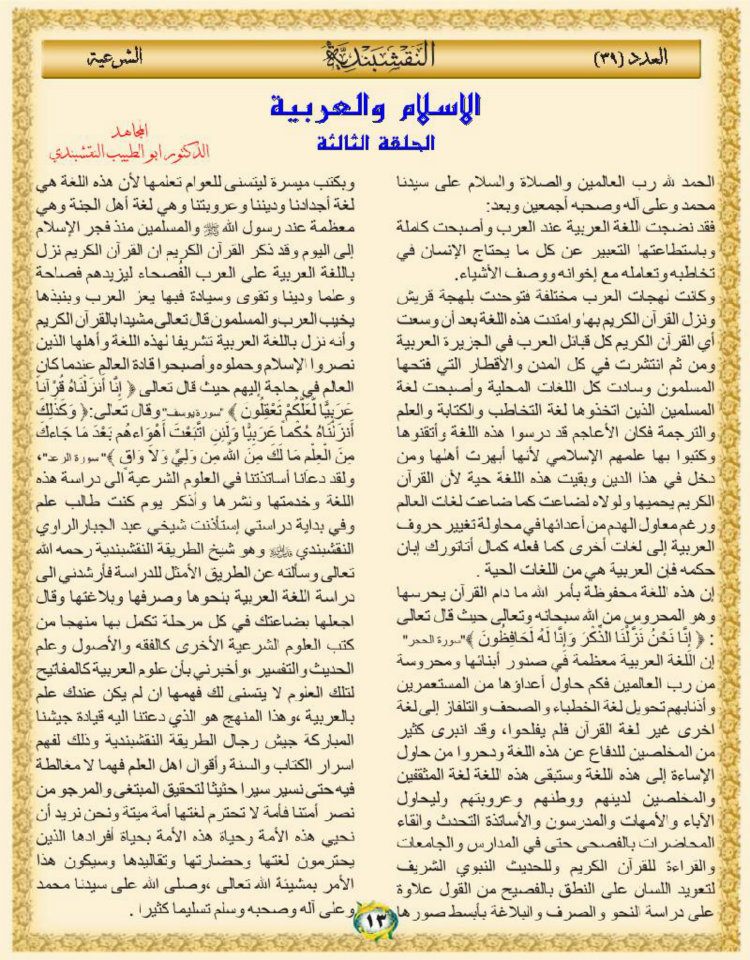 العدد (٣٩)
النقشبندية
الشرعية
الاسلام والعربية
الحلقة الثالثة
المجاهد
الدكتور ابو الطيب النقشبندي
الحمد لله رب العالمين والصلاة والسلام على سيدنا
محمد وعلى آله وصحبه أجمعين وبعد:
فقد نضجت اللغة العربية عند العرب وأصبحت كاملة
وباستطاعتها التعبير عن كل ما يحتاج الإنسان في
تخاطبه وتعامله مع إخوانه ووصف الأشياء.
وكانت لهجات العرب مختلفة فتوحدت بلهجة قريش
ونزل القرآن الكريم بها وامتدت هذه اللغة بعد أن وسعت
أي القرآن الكريم كل قبائل العرب في الجزيرة العربية
ومن ثم انتشرت في كل المدن والأقطار التي فتحها
المسلمون وسادت كل اللغات المحلية وأصبحت لغة
المسلمين الذين اتخذوها لغة التخاطب والكتابة والعلم
والترجمة فكان الأعاجم قد درسوا هذه اللغة وأتقنوها
وكتبوا بها علمهم الإسلامي لأنها أبهرت أهلها ومن
دخل في هذا الدين وبقيت هذه اللغة حية لأن القرآن
الكريم يحميها ولولاه لضاعت كما ضاعت لغات العالم
ورغم معاول الهدم من أعدائها في محاولة تغيير حروف
العربية إلى لغات أخرى كما فعله كمال أتاتورك إبان
حكمه فإن العربية هي من اللغات الحية .
إن هذه اللغة محفوظة بأمر الله ما دام القرآن يحرسها
وهو المحروس من الله سبحانه وتعالى حيث قال تعالى
:﴿ إِنَّا نَحْنُ نَزَّلْنَا الذِّكْرَ وَإِنَّا لَهُ لَحَافِظُونَ ﴾"سورة الحجر"
إن اللغة العربية معظمة في صدور أبنائها ومحروسة
من رب العالمين فكم حاول أعداؤها من المستعمرين
وأذنابهم تحويل لغة الخطباء والصحف والتلفاز إلى لغة
اخرى غير لغة القرآن فلم يفلحوا، وقد انبرى كثير
من المخلصين للدفاع عن هذه اللغة ودحروا من حاول
الإساءة إلى هذه اللغة وستبقى هذه اللغة لغة المثقفين
والمخلصين لدينهم ووطنهم وعروبتهم وليحاول
الآباء والأمهات والمدرسون والأساتذة التحدث والقاء
المحاضرات بالفصحى حتى في المدارس والجامعات
والقراءة للقرآن الكريم وللحديث النبوي الشريف
لتعويد اللسان على النطق بالفصيح من القول علاوة
على دراسة النحو والصرف والبلاغة بأبسط صورها
وبكتب ميسرة ليتسنى للعوام تعلمها لأن هذه اللغة هي
لغة أجدادنا وديننا وعروبتنا وهي لغة أهل الجنة وهي
معظمة عند رسول الله ﷺ والمسلمين منذ فجر الإسلام
إلى اليوم وقد ذكر القرآن الكريم ان القرآن الكريم نزل
باللغة العربية على العرب الفصحاء ليزيدهم فصاحة
وعلما ودينا وتقوى وسيادة فبها يعز العرب وبنبذها
يخيب العرب والمسلمون قال تعالى مشيدا بالقرآن الكريم
وأنه نزل باللغة العربية تشريفا لهذه اللغة وأهلها الذين
نصروا الإسلام وحملوه وأصبحوا قادة العالم عندما كان
العالم في حاجة إليهم حيث قال تعالى ﴿ إِنَّا أَنزَلْنَاهُ قُرْآناً
عَرَبِيًّا لَّعَلَّكُمْ تَعْقِلُونَ ﴾ "سورة يوسف" وقال تعالى:﴿ وَكَذَلِكَ
أَنزَلْنَاهُ حُكْماً عَرَبِيًّا وَلَئِنِ اتَّبَعْتَ أَهْوَاءهُم بَعْدَ مَا جَاءكَ
مِنَ الْعِلْمِ مَا لَكَ مِنَ اللّهِ مِن وَلِيٍّ وَلاَ وَاقٍ ﴾" سورة الرعد"،
ولقد دعانا أساتذتنا في العلوم الشرعية الى دراسة هذه
اللغة وخدمتها ونشرها وأذكر يوم كنت طالب علم
وفي بداية دراستي إستأذنت شيخي عبد الجبار الراوي
النقشبندي وهو شيخ الطريقة النقشبندية رحمه الله
تعالى وسألته عن الطريق الأمثل للدراسة فأرشدني الى
دراسة اللغة العربية بنحوها وصرفها وبلاغتها وقال
اجعلها بضاعتك في كل مرحلة تكمل بها منهجا من
كتب العلوم الشرعية الأخرى كالفقه والأصول وعلم
الحديث والتفسير ،وأخبرني بأن علوم العربية كالمفاتيح
لتلك العلوم لا يتسنى لك فهمها ان لم يكن عندك علم
بالعربية ،وهذا المنهج هو الذي دعتنا اليه قيادة جيشنا
المباركة جيش رجال الطريقة النقشبندية وذلك لفهم
اسرار الكتاب والسنة وأقوال اهل العلم فهما لا مغالطة
فيه حتى نسير سيرا حثيثا لتحقيق المبتغى والمرجو من
نصر أمتنا فأمة لا تحترم لغتها أمة ميتة ونحن نريد أن
نحيي هذه الأمة وحياة هذه الأمة بحياة أفرادها الذين
يحترمون لغتها وحضارتها وتقاليدها وسيكون هذا
الأمر بمشيئة الله تعالى ،وصلى الله على سيدنا محمد
وعلى آله وصحبه وسلم تسليما كثيرا .
١٣